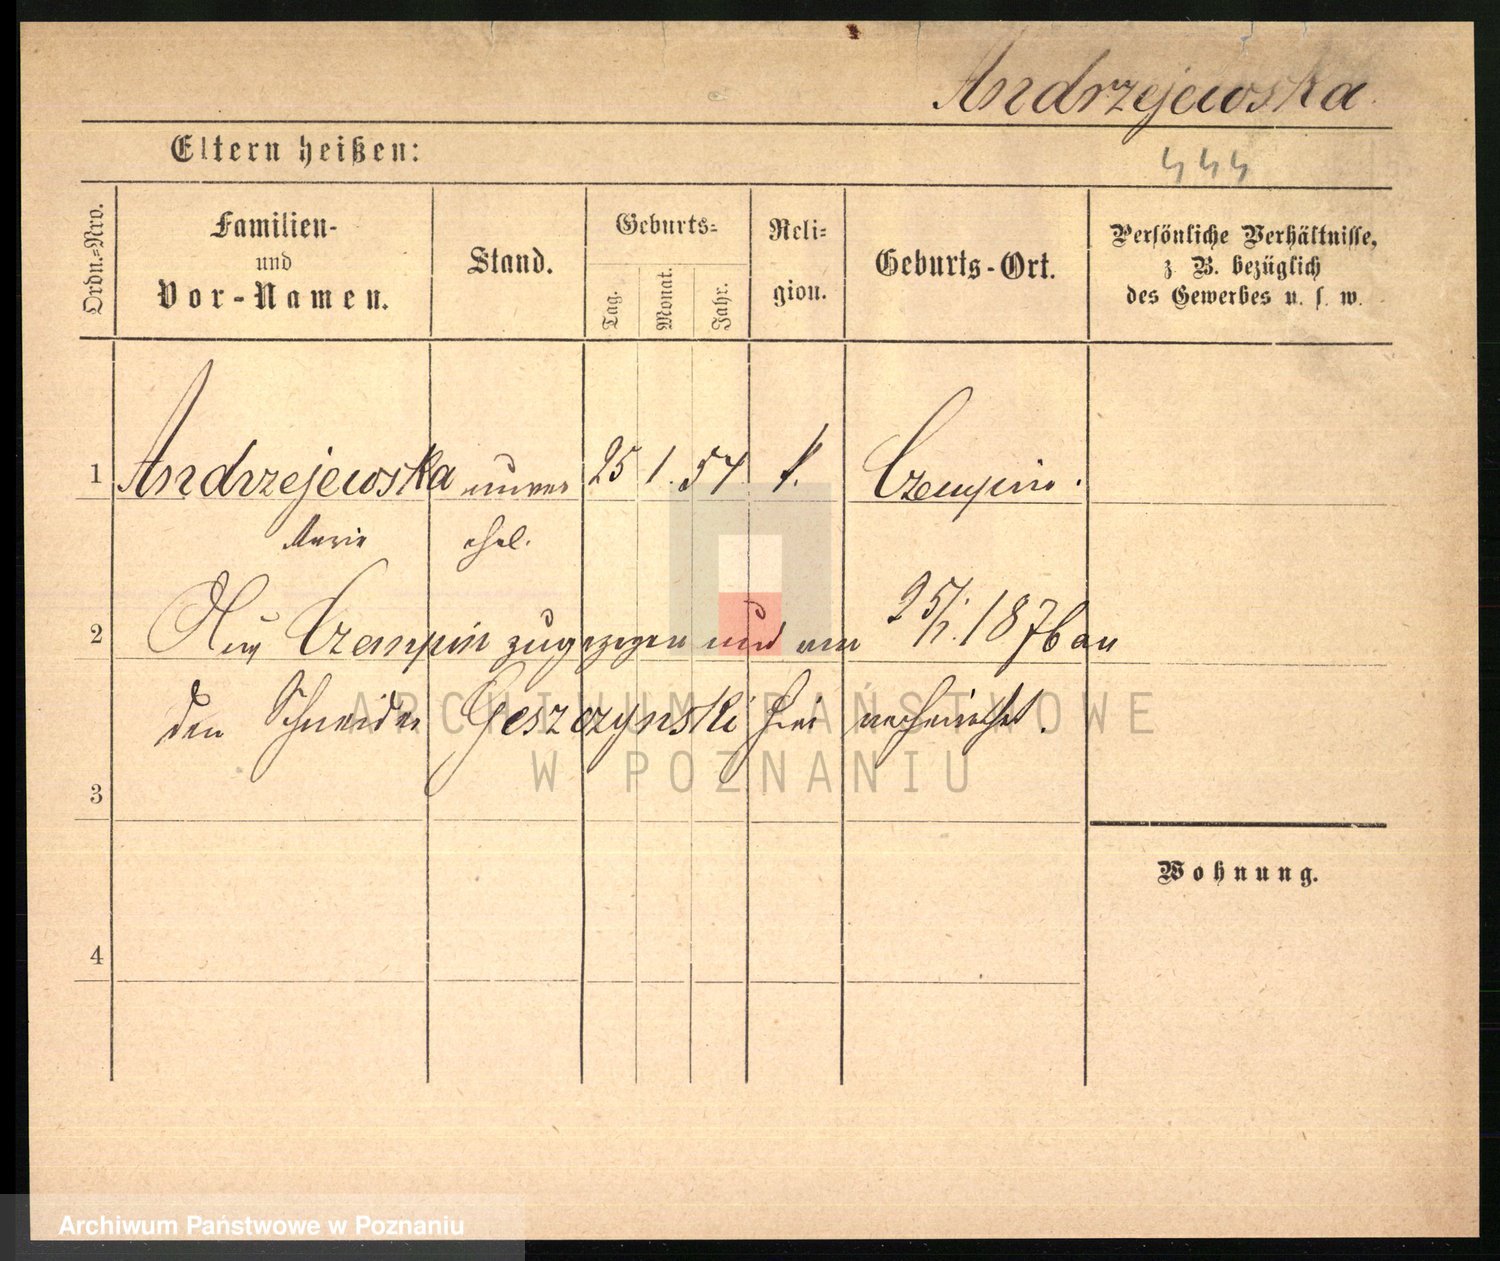 Andrzejewska
444
Eltern heißen:
Ordn.-Nro.
Familien-
und
Vor-Namen.
Stand.
Geburts-
Tag.
Monat.
Jahr.
Reli-
gion.
Geburts-Ort.
Persönliche Verhältnisse,
z. B. bezüglich
des Gewerbes u. s. w.
1 Andrzejewska unver 25 1. 54 k. Czempin.
Marie ehel.
2 Aus Czempin zugezogen und am 25/1. 1876 an
den Schneider Geszczynski hier verheirathet.
3
Wohnung.
4
ARCHIWUM PAŃSTWOWE
W POZNANIU
Archiwum Państwowe w Poznaniu